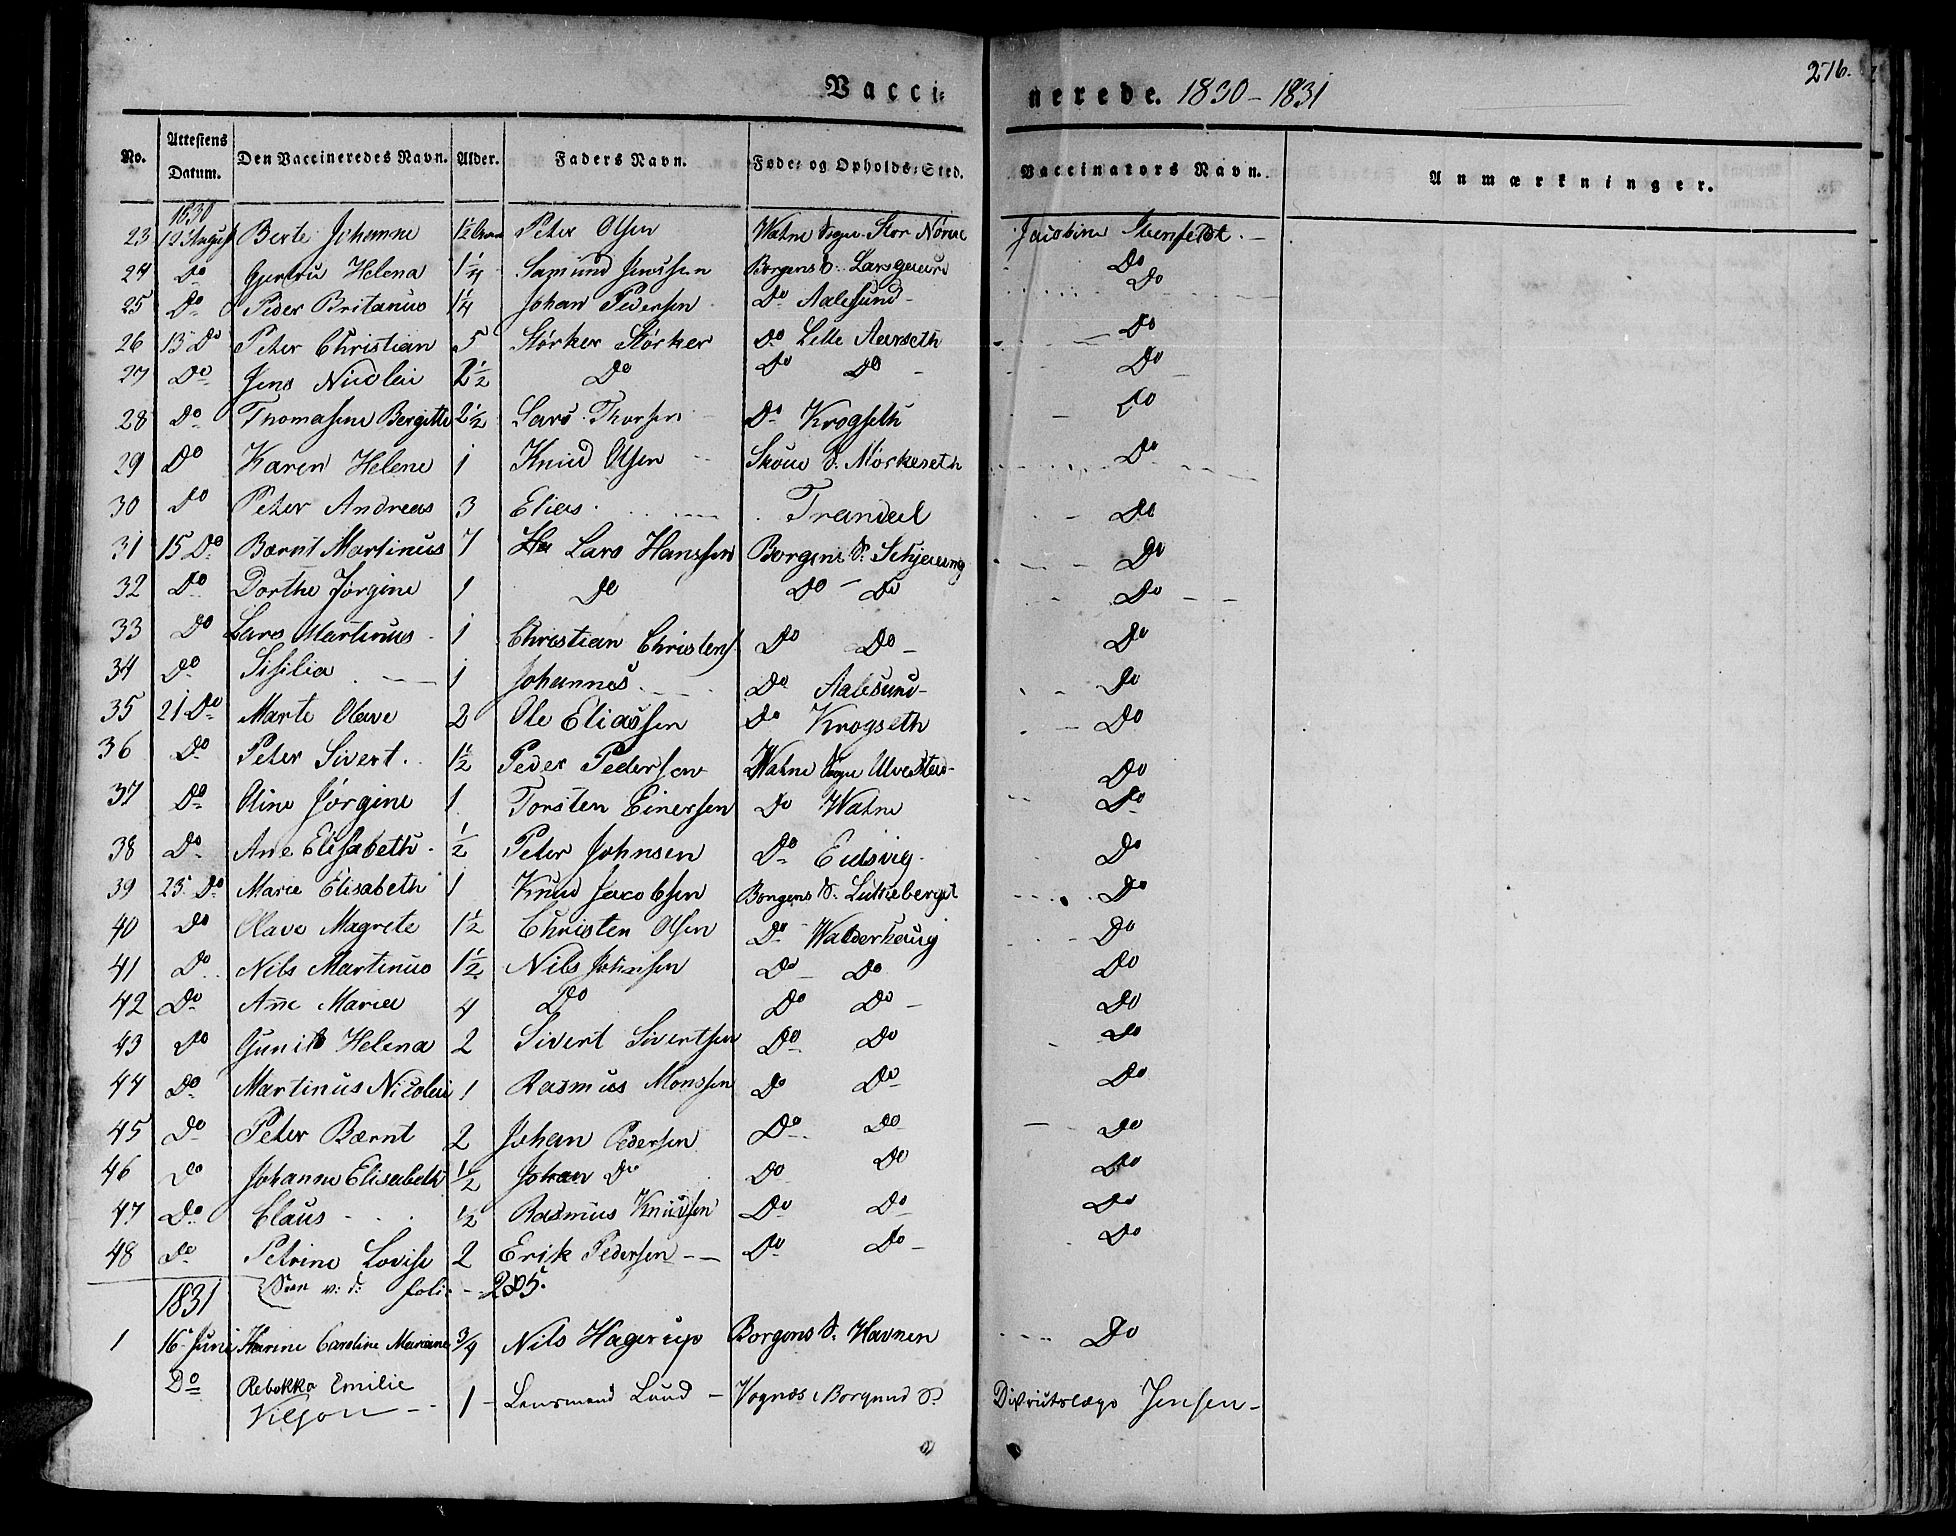 Vaccinerede. 1830 - 1831
276.
No. Attestens Datum. Den Vaccineredes Navn. Alder. Faders Navn. Føde- og Opholds-Sted. Vaccinators Navn. Anmærkninger.
1830
23 12 August Berte Johanne 1½ Peter Olsen Watne Sogn Stor Nørve Jacobine
24 Do Helena 1¼ Borgens S. Do
25 Do Peder Britanus 1¼ Johan Pedersen Do Aalesund - Do
26 13 Do Peter Christian 5 Størker Størker Do Lille Aarseth Do
27 Do Jens Nicolai 2½ Do Do Do - Do
28 Do Thomasine Bergitte 2½ Lars Thorsen Do Krogseth Do
29 Do Karen Helene 1 Knud Olsen Skoue S. Morkeseth Do
30 Do Peter Andreas 3 Elias Trandal Do
31 15 Do Bærnt Martinus 7 Lars Hanssen Borgens S. Do
32 Do Dorthe Jørgine 1 Do Do - Do Do
33 Do Lars Martinus 1 Christian Christens Do Do - Do
34 Do Sisilia 1 Johannes Do Aalesund - Do
35 21 Do Marte Olave 2 Ole Eliassen Do Krogseth Do
36 Do Peter Sivert 1½ Peder Pedersen Watne Sogn Ulvestad - Do
37 Do Oline Jørgine 1 Torsten Einersen Do Watne Do
38 Do Ane Elisabeth ½ Peter Johnsen Do Eidsvig Do
39 25 Do Marie Elisabeth 1 Knud Jacobsen Borgens S. Do
40 Do Olave Magrete 1½ Christen Olsen Do Walderhaug Do
41 Do Nils Martinus 1½ Nils Johansen Do - Do Do
42 Do Ane Maria 4 Do Do Do - Do
43 Do Gunild Helena 2 Sivert Sivertsen Do Do Do
44 Do Martinus Nicolai 1 Rasmus Monssen Do Do Do
45 Do Peter Bærnt 2 Johan Pedersen Do Do Do
46 Do Johanne Elisabeth ½ Johan Do Do Do Do
47 Do Claus ½ Rasmus Knudsen Do Do Do
48 Do Petrine Lovise 2 Erik Pedersen Do Do - Do
v: d: foli - 205.
1831
1 16 Juni Hanne Caroline Mariane ¾ Nils Hagerup Borgens S. Havnen Do
Do Rebekka Emilie
Vilson 1 Lensmand Lund - Borgund S. Districtslæge Jensen -